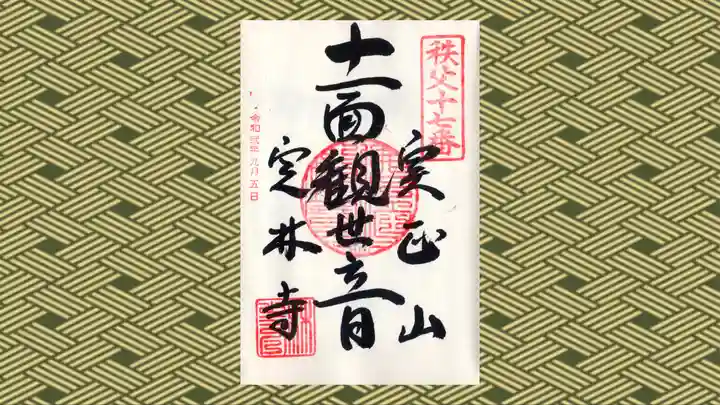 秩父十七番
実正山
十一面観世音
定林寺
令和弐年九月五日